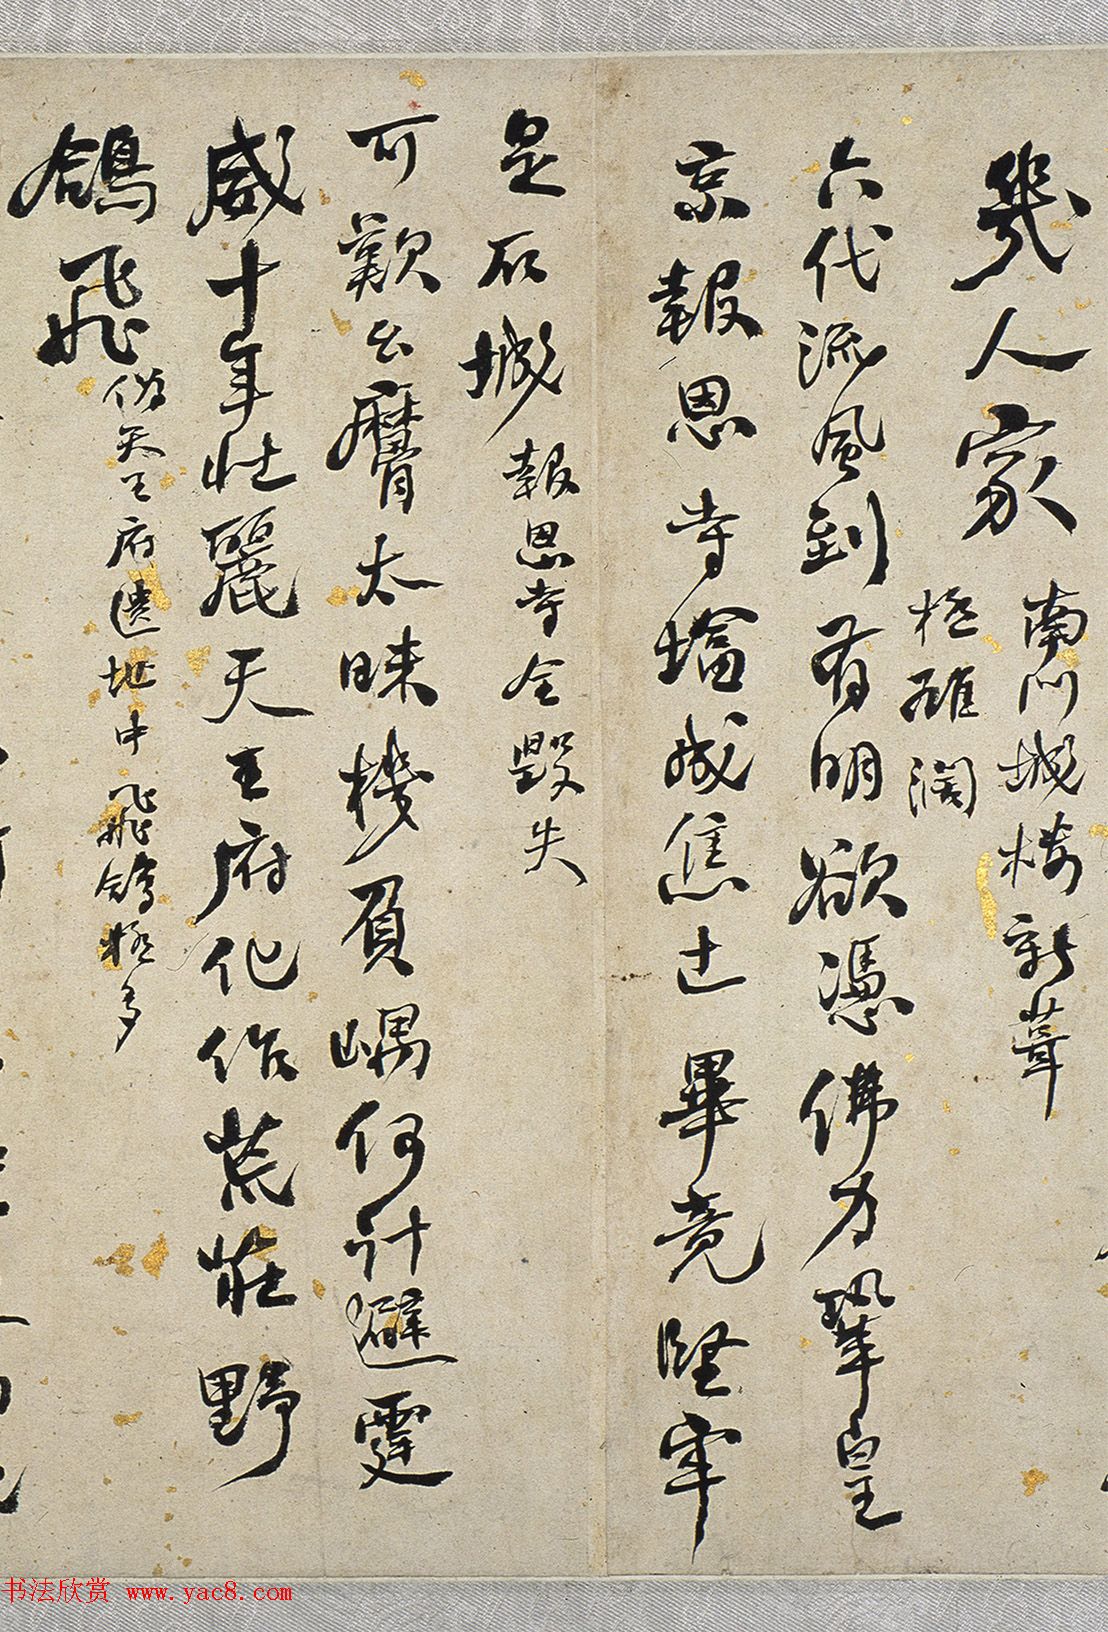 幾人家 南門城樓新葺
極雄闊
六代流風到有明欲憑佛力鞏皇
京報恩寺塔成焦土畢竟堅牢
是石城 報恩寺全毀失
可歎幺麼太昧機負嵎何計避霆
威十年壯麗天王府化作荒莊野
鴿飛 偽天王府遺地中飛鴿極多
书法欣赏 www.yac8.com